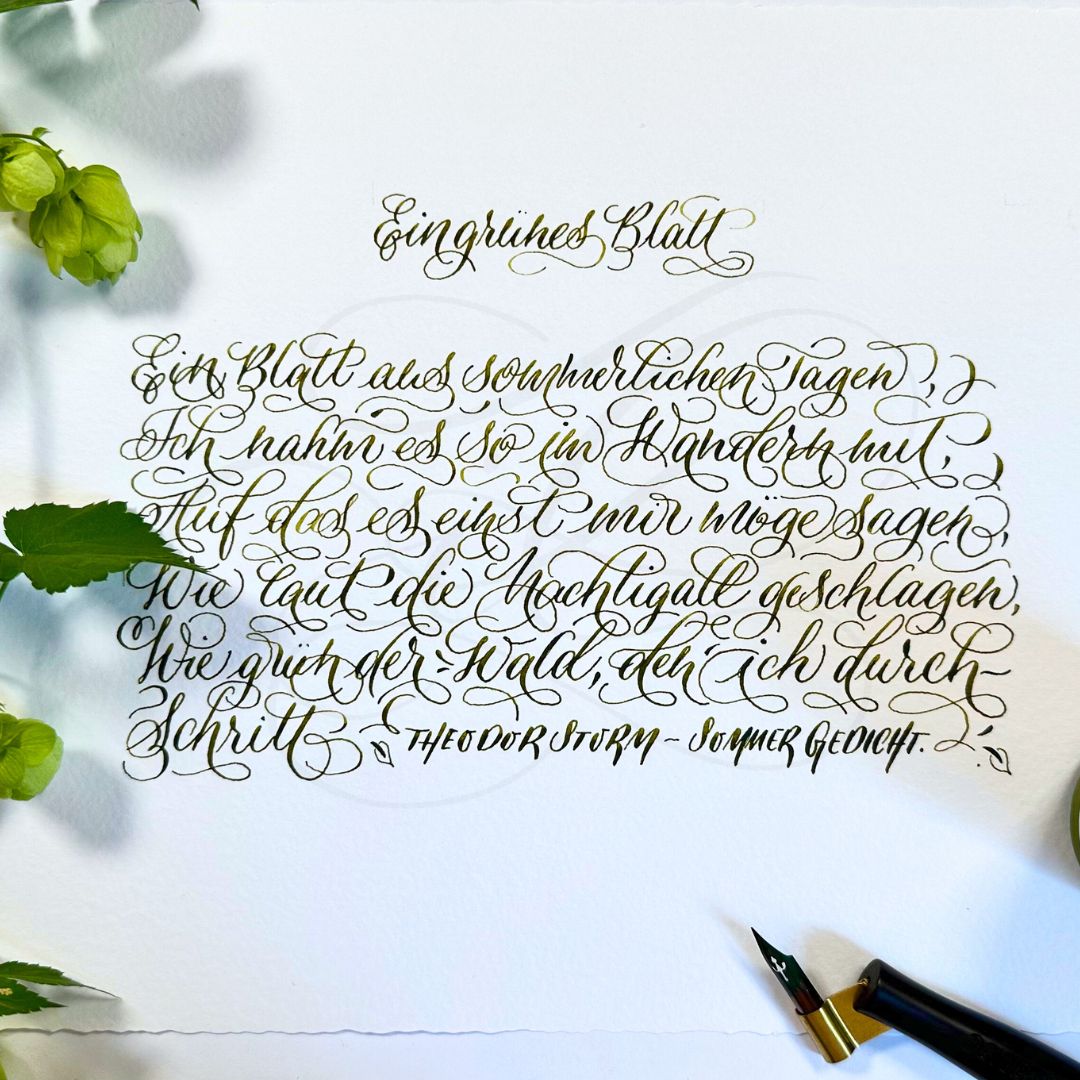 Ein grünes Blatt
Ein Blatt aus sommerlichen Tagen,
Ich nahm es so im Wandern mit,
Auf das es einst mir möge sagen,
Wie laut die Nachtigall geschlagen,
Wie grün der Wald, den ich durch-
Schritt
THEODOR STORM - SOMMER GEDICHT.